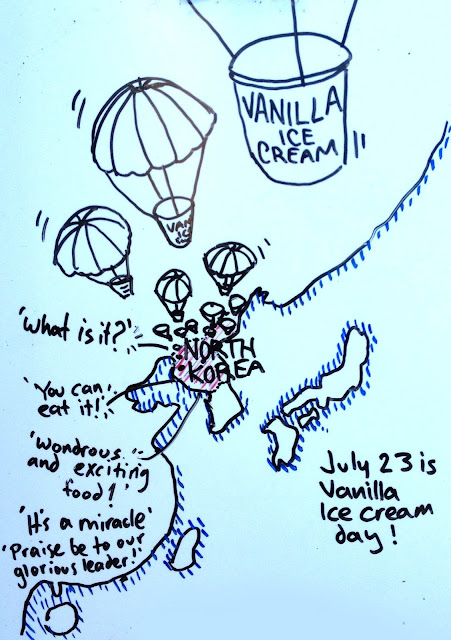 VANILLA
ICE
CREAM
VAN
'What is it?'
NORTH
KOREA
'You can
eat it!'
'Wondrous
and exciting
food!'
'It's a miracle'
'Praise be to our
glorious leader!'
July 23 is
Vanilla
Ice cream
day!